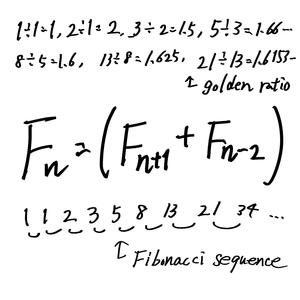 1÷1=1, 2÷1=2, 3÷2=1.5, 5÷3=1.66...
8÷5=1.6, 13÷8=1.625, 21÷13=1.6153-
↑ golden ratio
Fn=(Fn+1+Fn-2)
1 1 2 3 5 8 13 21 34 ...
↑ Fibonacci sequence